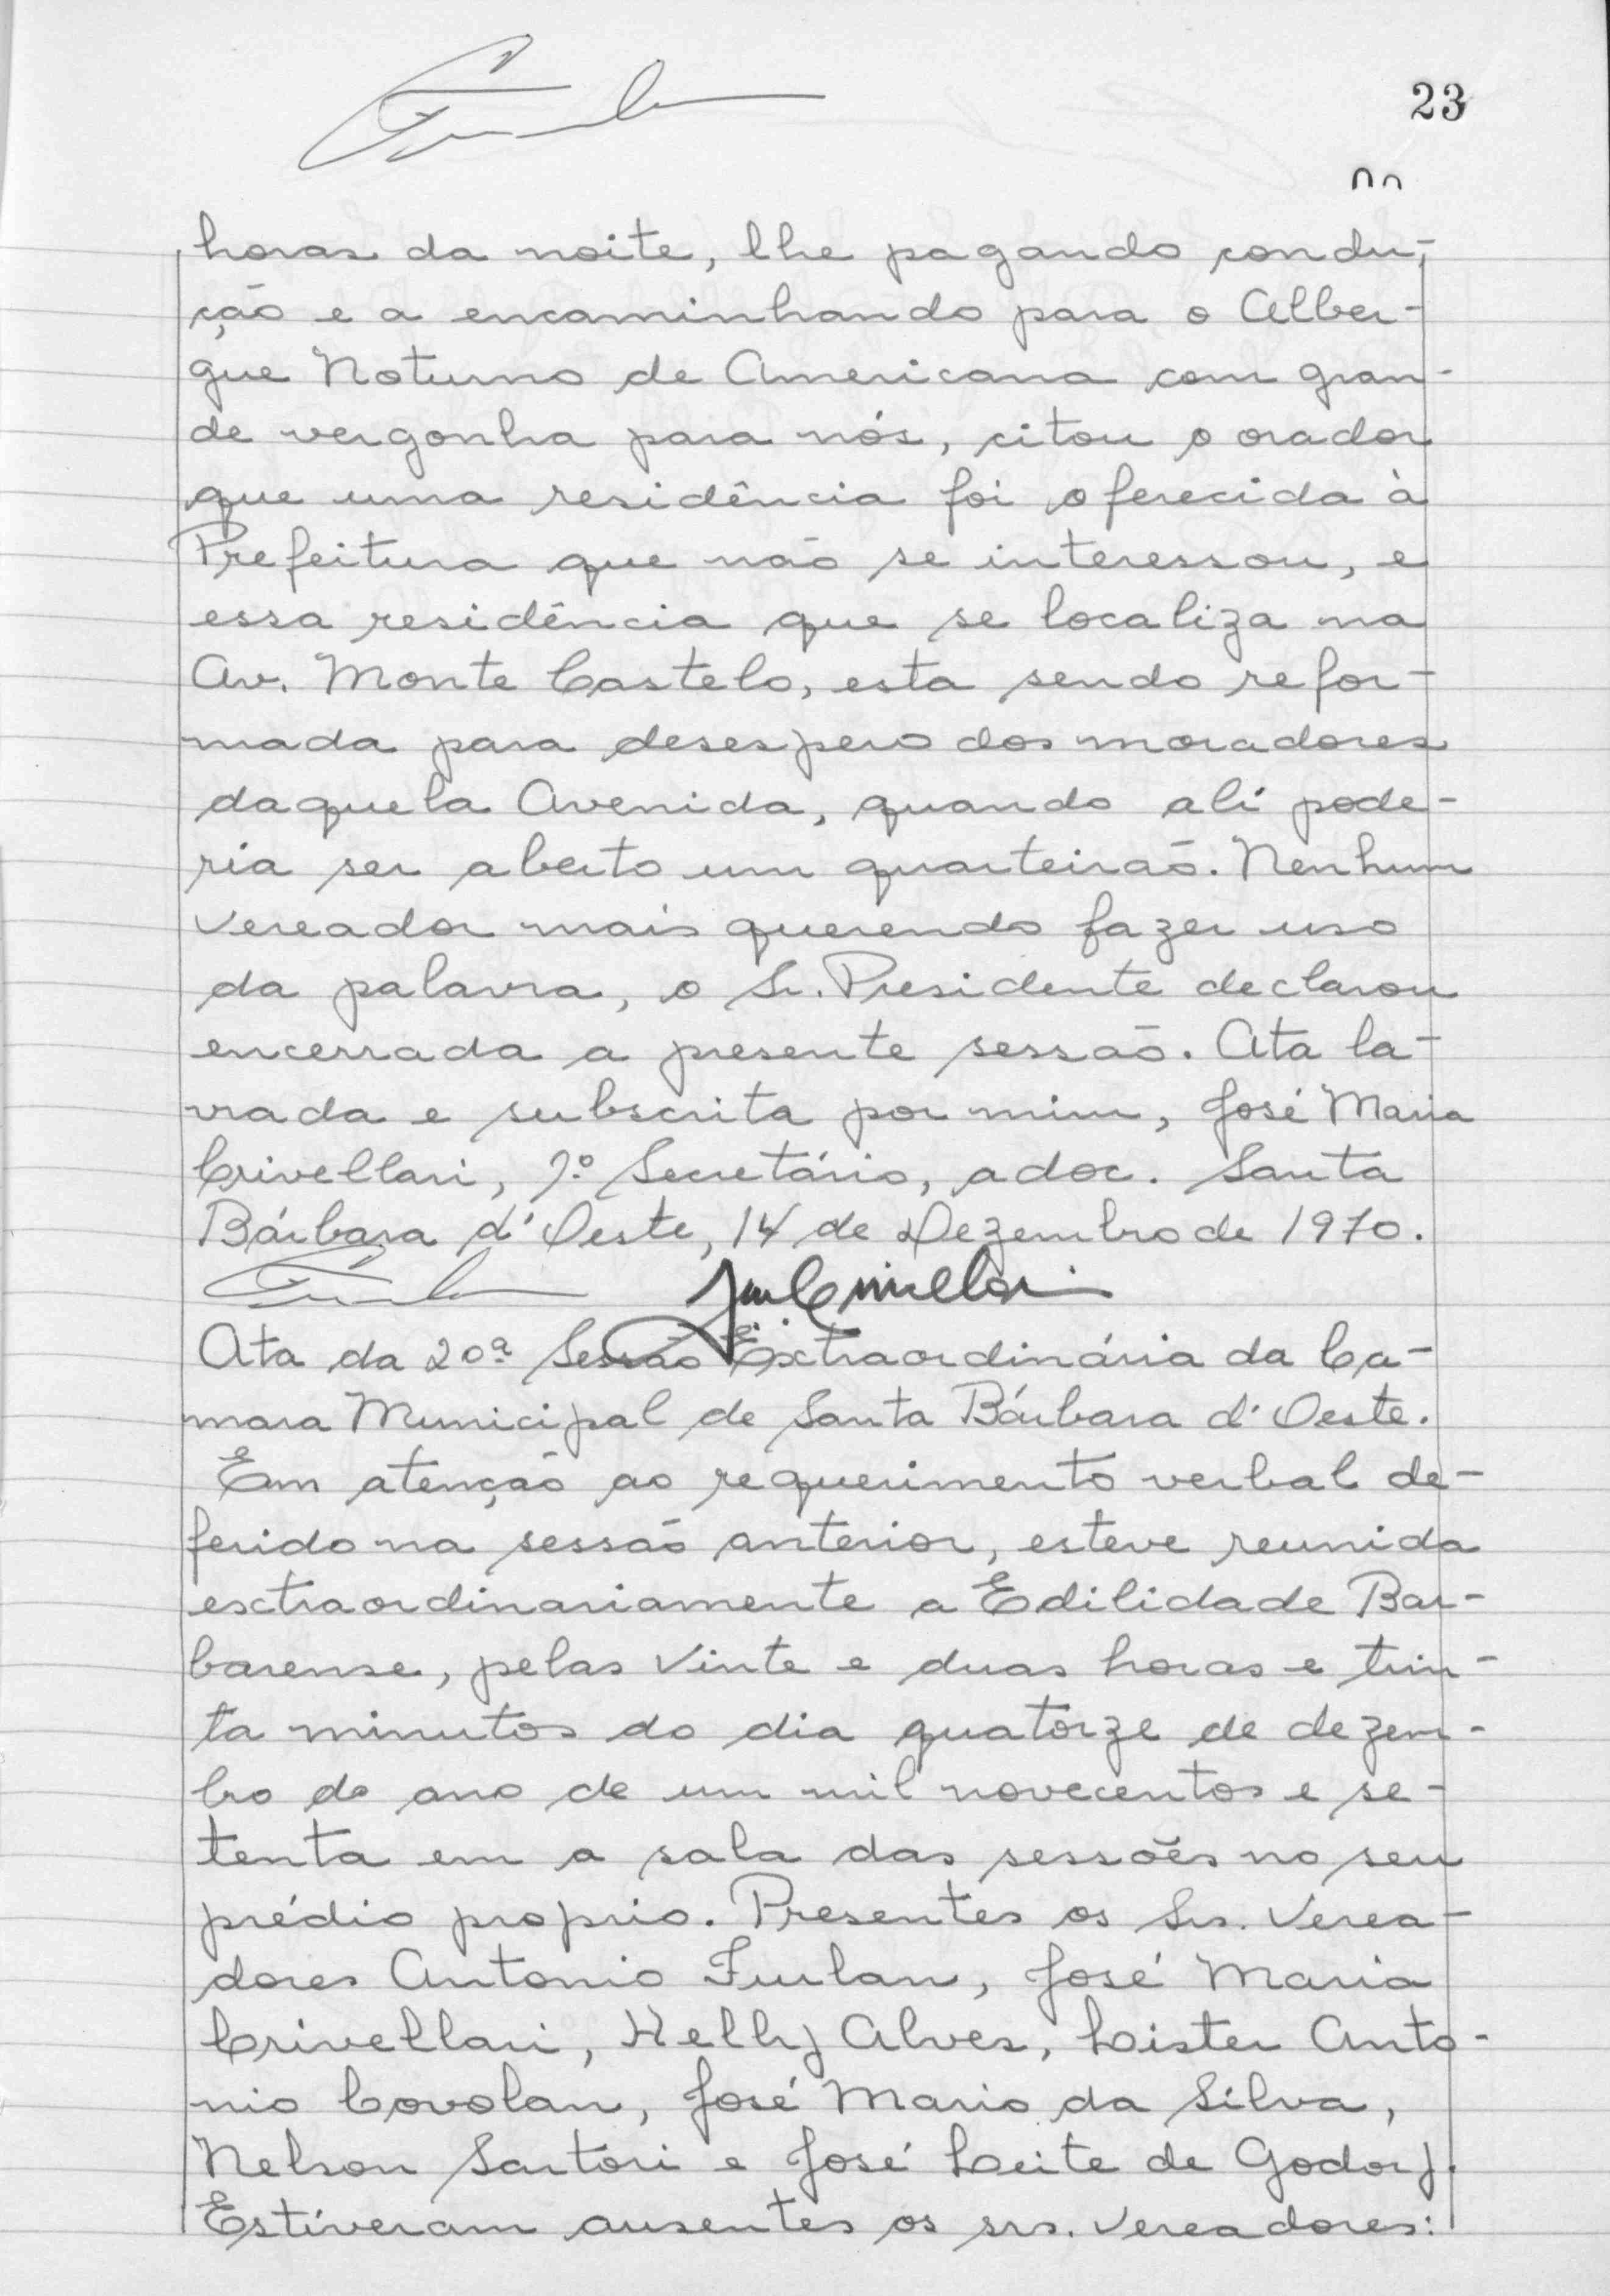 23
horas da noite, lhe pagando condu-
ção e a encaminhando para o Alber-
gue Noturno de Americana com gran-
de vergonha para nós, citou o orador
que uma residência foi oferecida à
Prefeitura que não se interessou, e
essa residência que se localiza na
Av. Monte Castelo, esta sendo refor-
mada para desespero dos moradores
daquela Avenida, quando alí pode-
ria ser aberto um quarteirão. Nenhum
vereador mais querendo fazer uso
da palavra, o Sr. Presidente declarou
encerrada a presente sessão. Ata la-
vrada e subscrita por mim, José Maria
Crivellari, 1º Secretário, adoc. Santa
Bárbara d'Oeste, 14 de Dezembro de 1970.
Ata da 20ª Sessão Extraordinária da Ca-
mara Municipal de Santa Bárbara d'Oeste.
Em atenção ao requerimento verbal de-
ferido na sessão anterior, esteve reunida
extraordinariamente a Edilidade Bar-
barense, pelas vinte e duas horas e trin-
ta minutos do dia quatorze de dezem-
bro do ano de um mil novecentos e se-
tenta em a sala das sessões no seu
prédio proprio. Presentes os Srs. Verea-
dores Antonio Furlan, José Maria
Crivellari, Kelly Alves, Lister Anto-
nio Covolan, José Mario da Silva,
Nelson Sartori e José Leite de Godoy.
Estiveram ausentes os srs. vereadores: